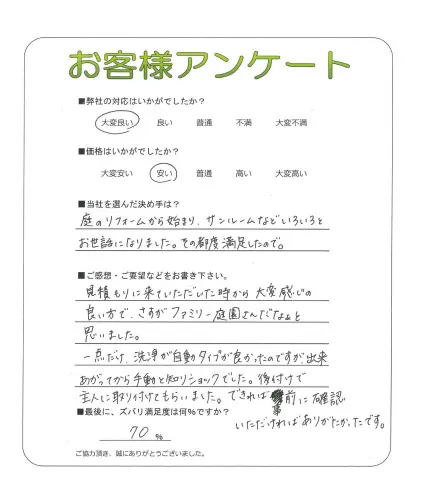 お客様アンケート
■弊社の対応はいかがでしたか?
大変良い 良い 普通 不満 大変不満
■価格はいかがでしたか?
大変安い 安い 普通 高い 大変高い
■当社を選んだ決め手は?
庭のリフォームから始まり、サンルームなどいろいろと
お世話になりました。その都度満足したので。
■ご感想・ご要望などをお書き下さい。
見積もりに来ていただいた時から大変感じの
良い方で、さすがファミリー庭園さんだなぁと
思いました。
一点だけ、洗浄が自動タイプが良かったのですが、出来
あがってから手動と知りショックでした。後付けで
主人に取り付けてもらいました。できれば事前に確認
いただければありがたかったです。
■最後に、ズバリ満足度は何%ですか?
70 %
ご協力頂き、誠にありがとうございました。